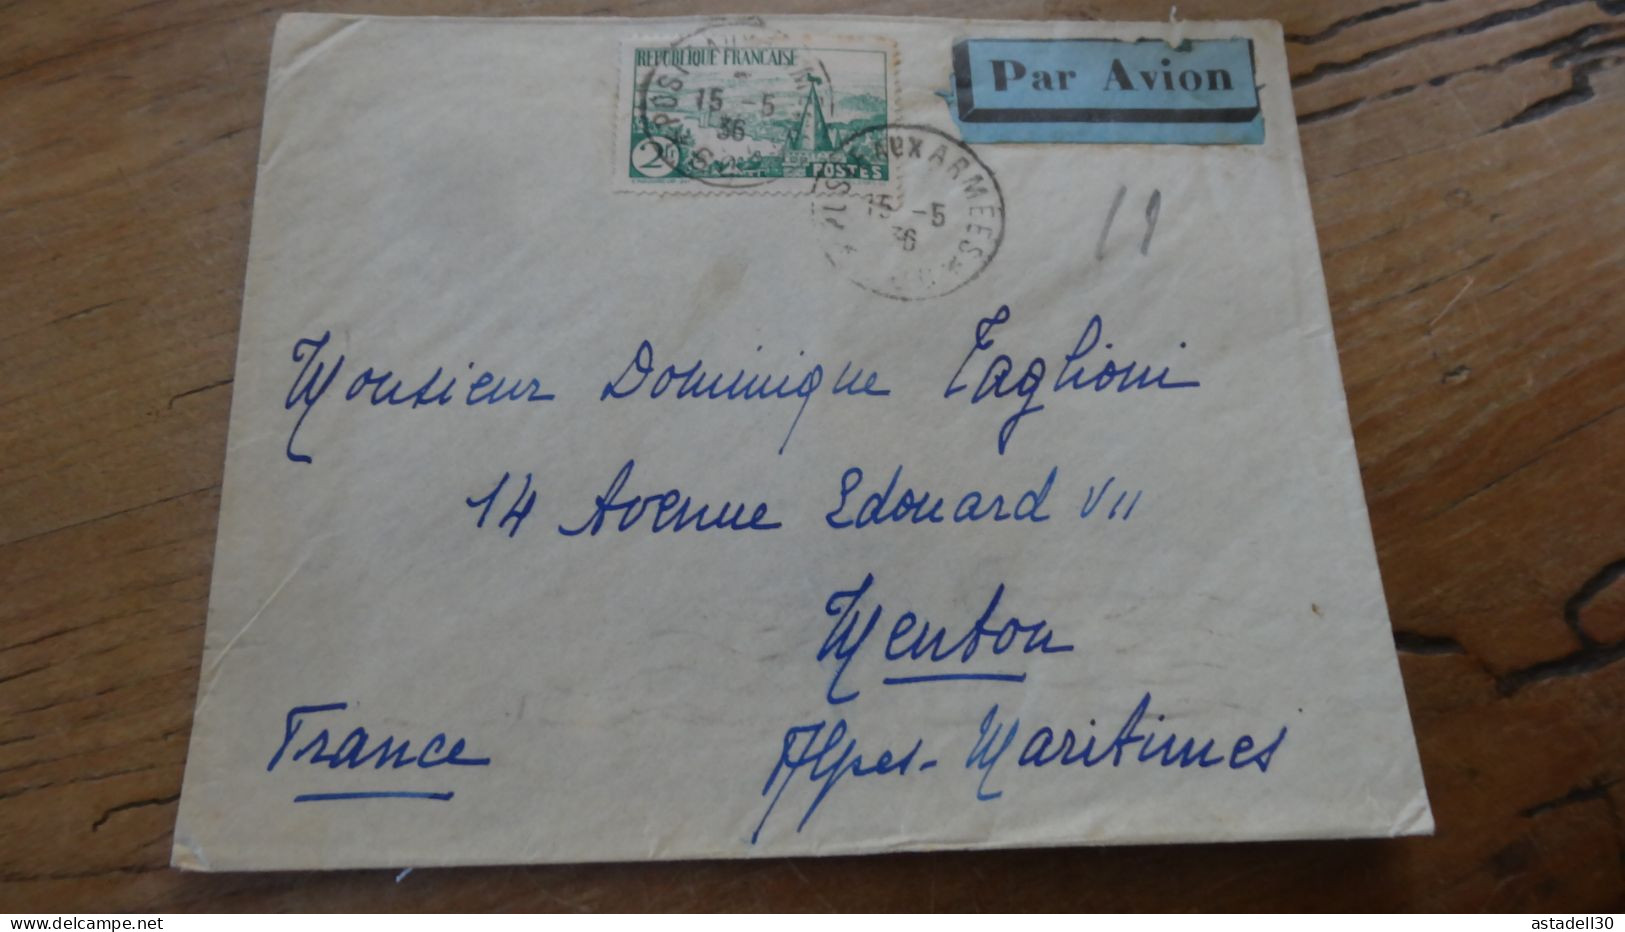 REPUBLIQUE FRANCAISE
15 -5
36
2
POSTES
Par Avion
AUX ARMEES *
15 -5
36
Monsieur Dominique Taglioni
14 Avenue Edouard VII
Menton
France
Alpes-Maritimes
astadell30